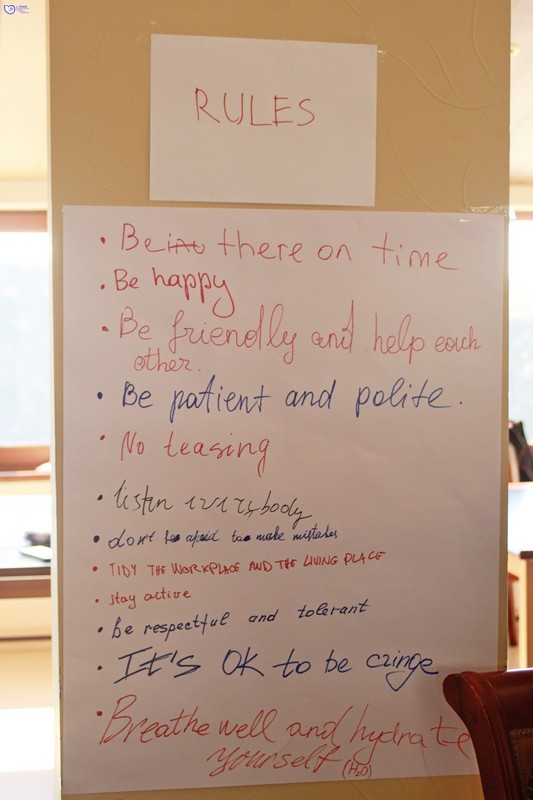 RULES
• Be there on time
• Be happy
• Be friendly and help each
other.
• Be patient and polite.
• No teasing
• listen everybody
• don't be afraid to make mistakes
• TIDY THE WORKPLACE AND THE LIVING PLACE
• stay active
• be respectful and tolerant
• IT'S OK to be cringe
• Breathe well and hydrate
yourself (H2O)